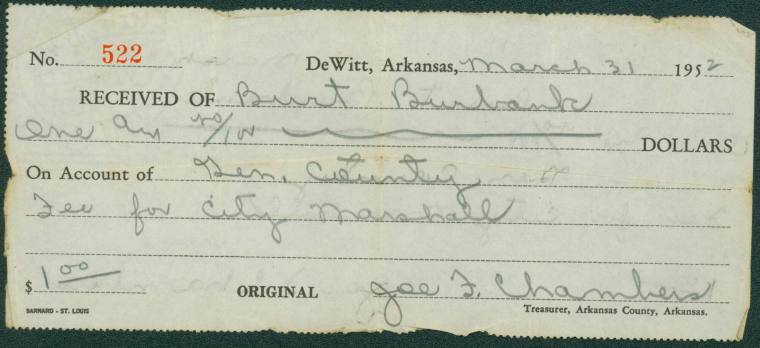 No. 522 DeWitt, Arkansas, March 31 1952
RECEIVED OF Burt Burbank
One and no/100 DOLLARS
On Account of Gen. County
Fee for City Marshall
$1 00 ORIGINAL Joe F. Chambers
BARNARD - ST. LOUIS Treasurer, Arkansas County, Arkansas.